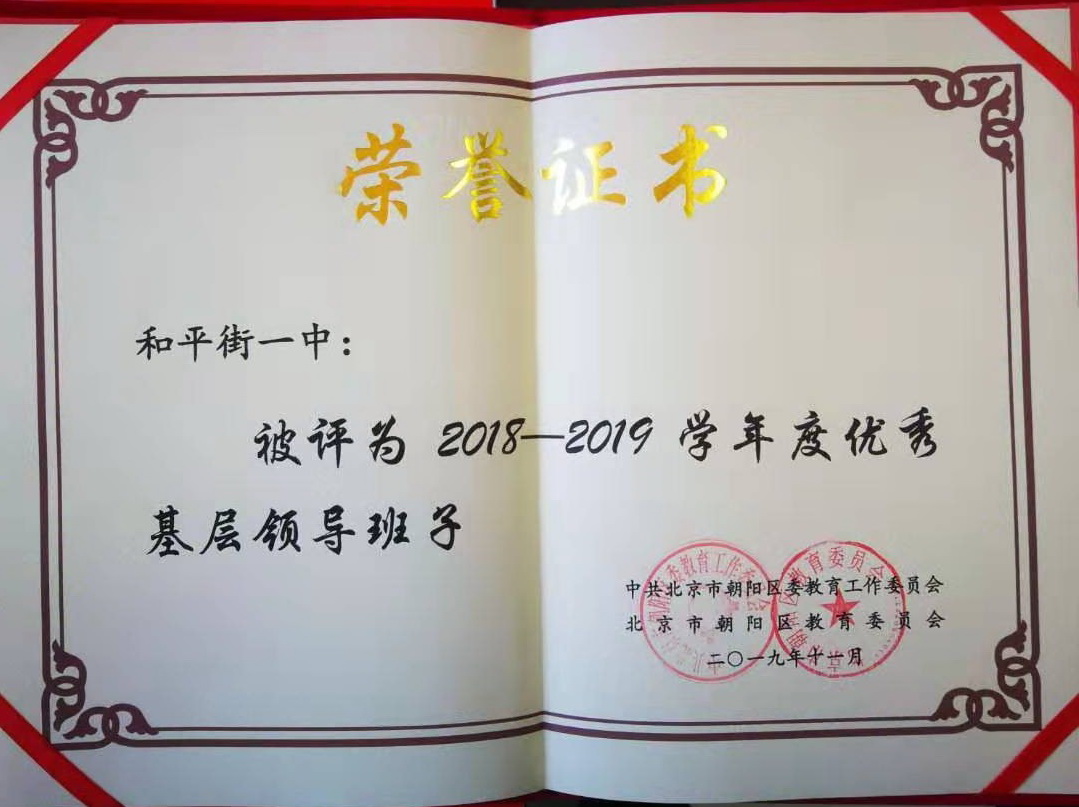 荣誉证书
和平街一中：
被评为 2018—2019 学年度优秀
基层领导班子
中共北京市朝阳区委教育工作委员会
北京市朝阳区教育委员会
二〇一九年十一月